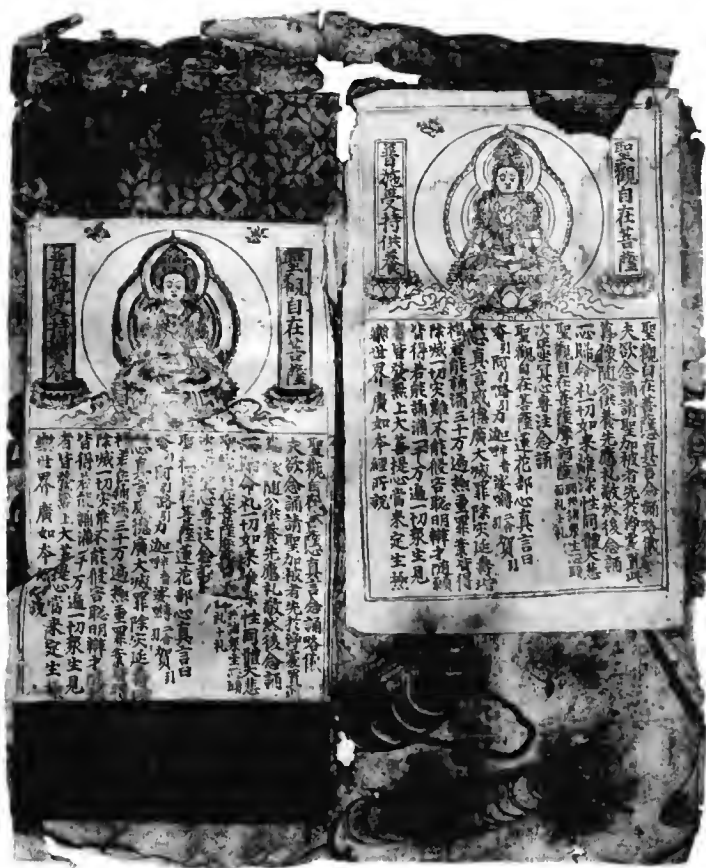 聖觀自在菩薩
普施受持供養
聖觀自在菩薩心真言念誦略儀
夫欲念誦請聖加被者先於淨處置此
尊像隨分供養先應礼敬然後念誦
一心歸命礼一切如來離染性同體大悲
聖觀自在菩薩摩訶薩
次應冥心專注念誦
聖觀自在菩薩蓮花部心真言曰
唵引阿引嚕引力迦半音娑嚩二合賀引
心真言威德廣大滅罪除災延壽增
福若能誦滿三十万遍極重罪業皆得
除滅一切災難不能侵害聰明辯才隨願
皆得若能誦滿一千万遍一切眾生見
者皆發無上大菩提心當來定生極
樂世界廣如本經所說
聖觀自在菩薩
普施受持供養
聖觀自在菩薩心真言念誦略儀
夫欲念誦請聖加被者先於淨處置
像隨分供養先應礼敬然後念誦
歸命礼切如來離染性同體大悲
聖觀自在菩薩摩
次心專注念誦
聖在菩薩蓮花部心真言曰
引阿引嚕引力迦半音娑嚩二合賀引
心真言威德廣大滅罪除災延
若能誦滿三十万遍極重罪業
除滅一切災難不能侵害聰明辯才
皆得若能誦滿一千万遍一切眾生見
者皆發無上大菩提心當來定生極
樂世界廣如本說